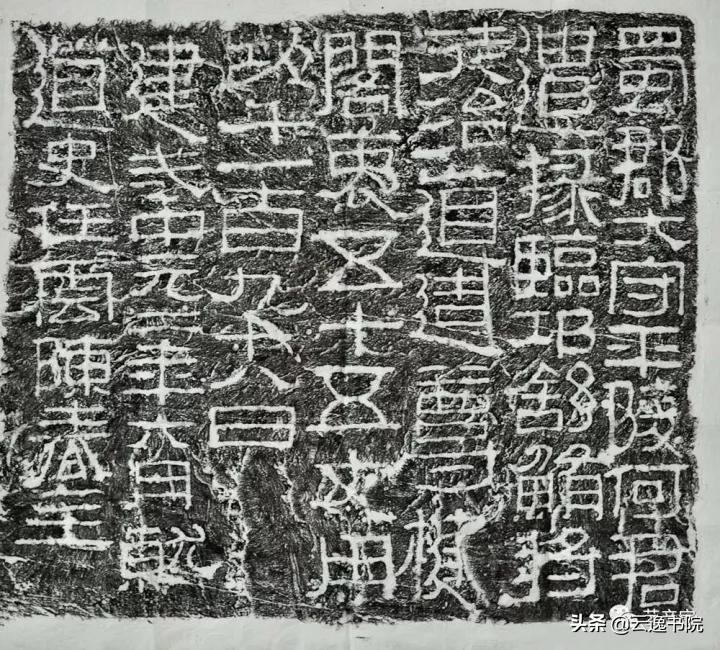 蜀郡大守平陵何君
遣掾臨邛舒鮪將
徒治道造尊楗
閣袤五十五丈用
功千一百九十八日
建武中元二年六月就
道史任雲陳春主
头条 @云逸书院